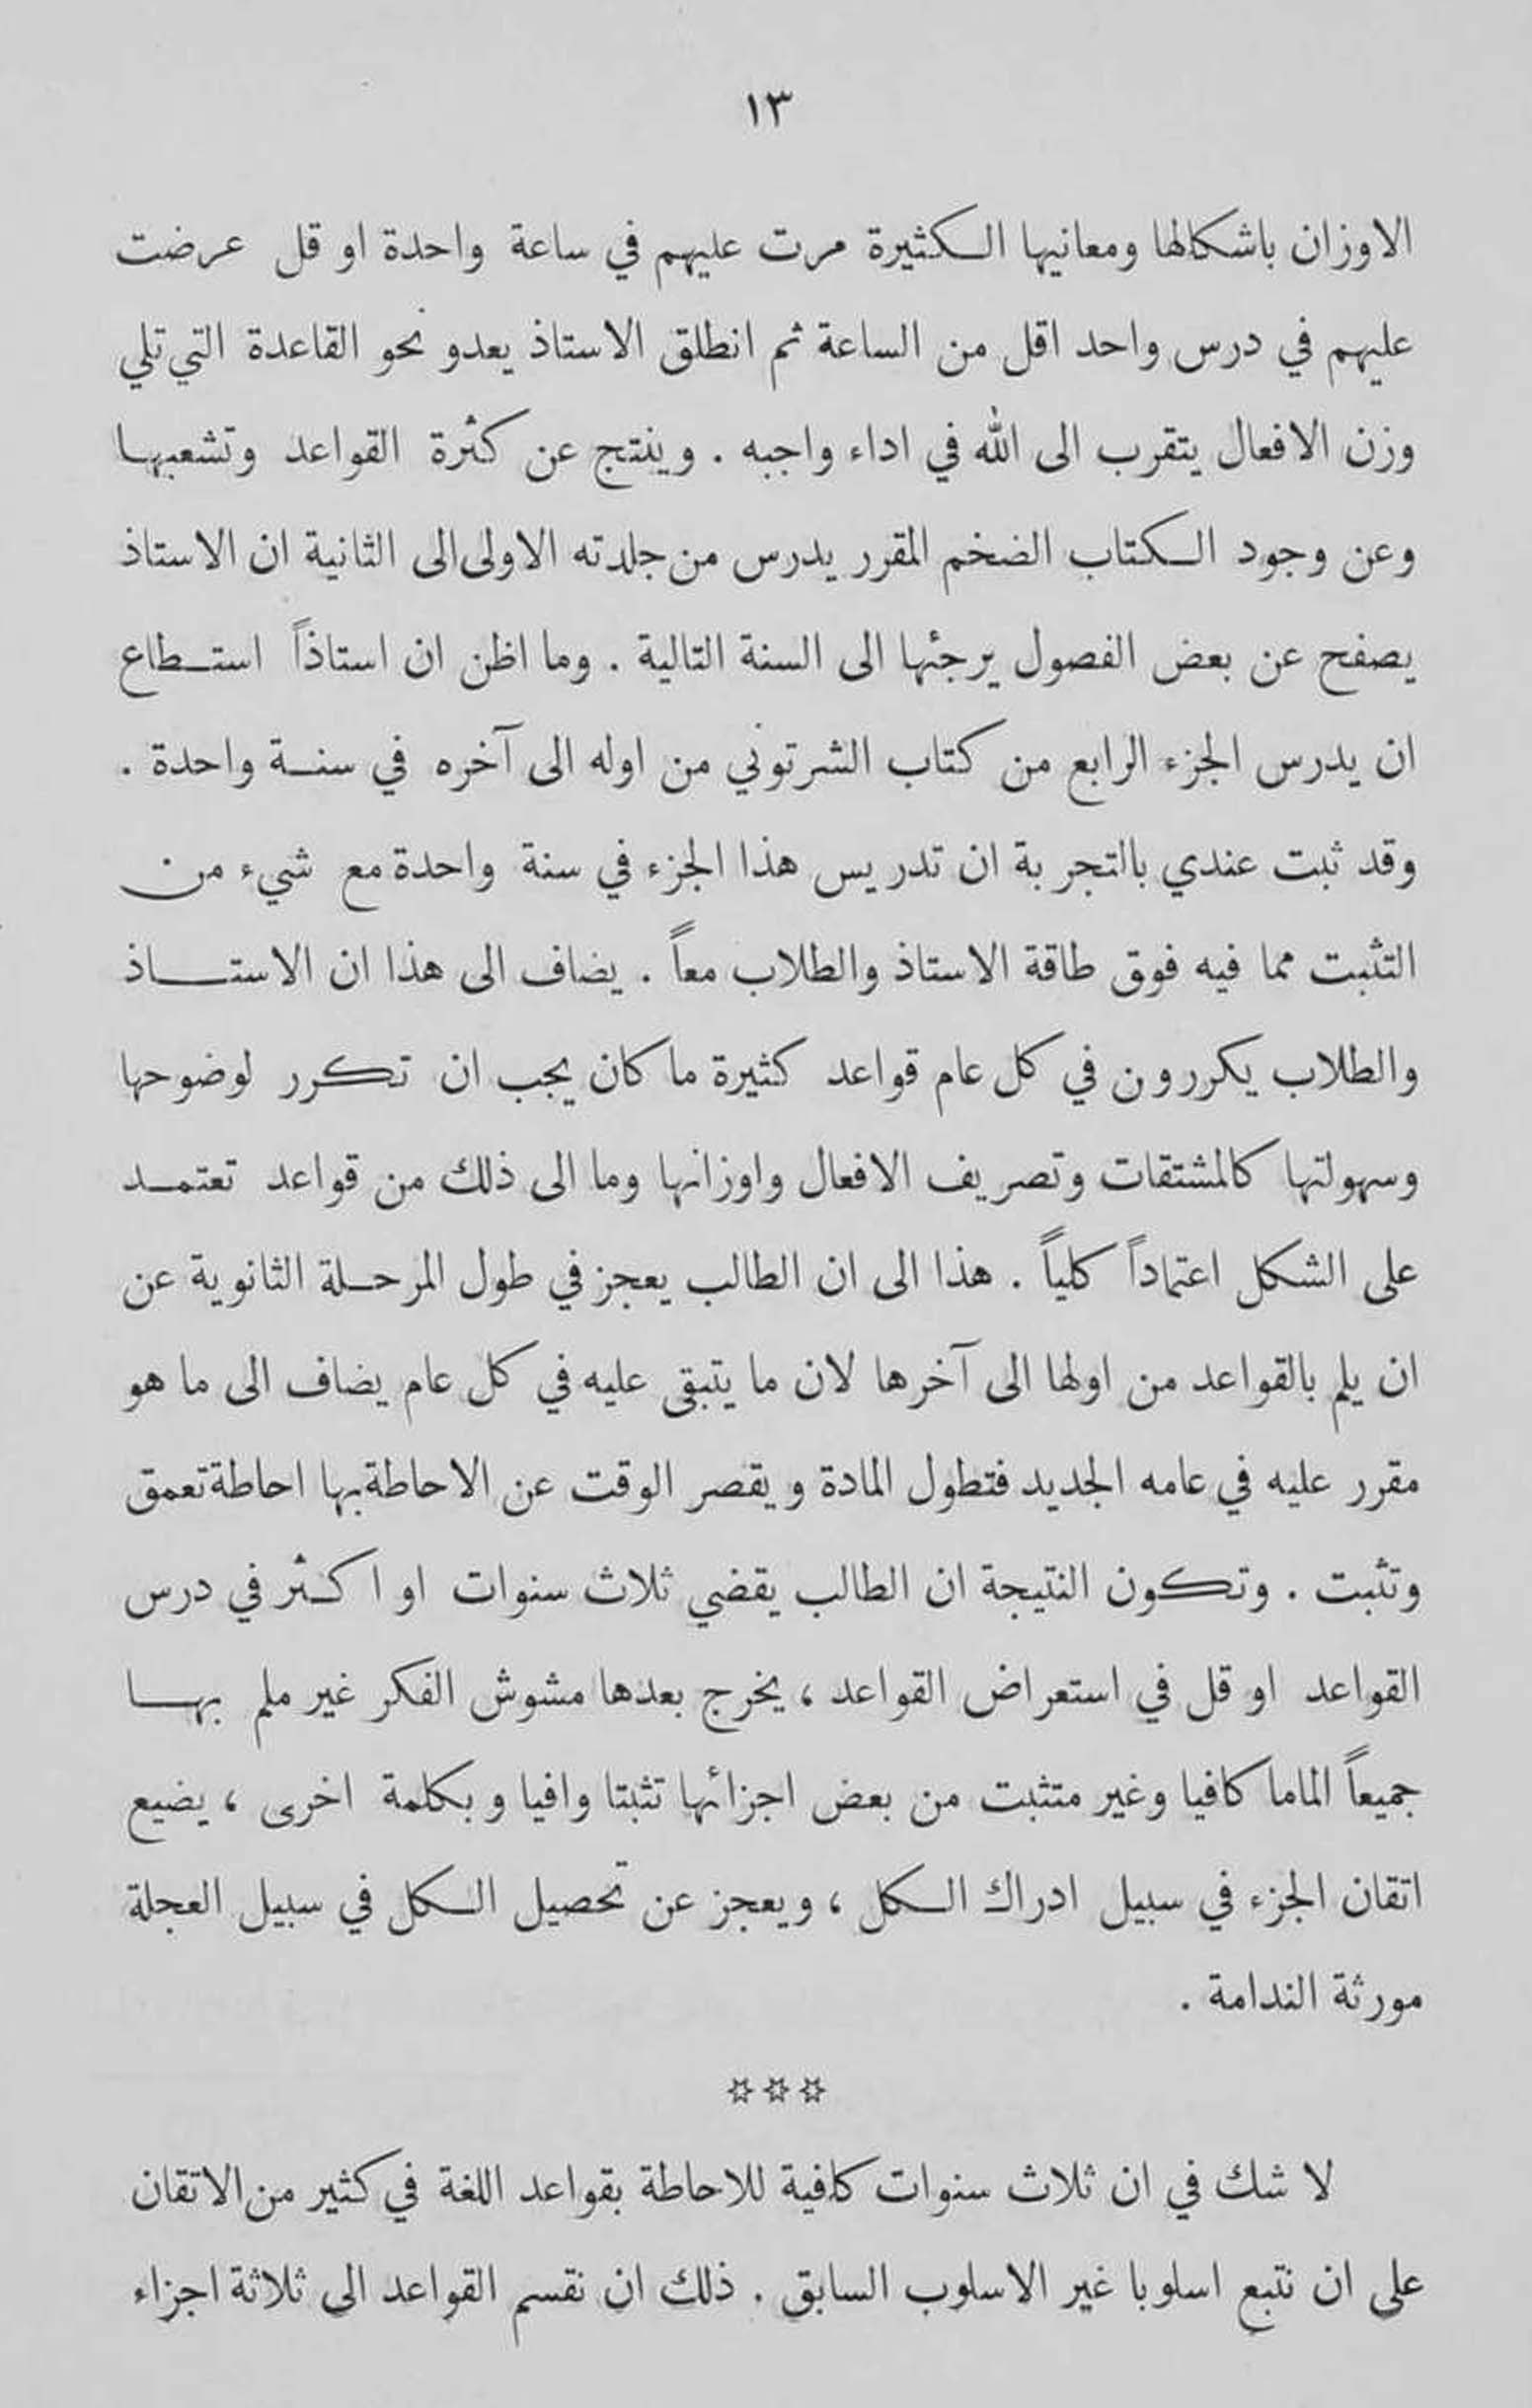 ١٣
الاوزان باشكالها ومعانيها الكثيرة مرت عليهم في ساعة واحدة او قل عرضت
عليهم في درس واحد اقل من الساعة ثم انطلق الاستاذ يعدو نحو القاعدة التي تلي
وزن الافعال يتقرب الى الله في اداء واجبه . وينتج عن كثرة القواعد وتشعبها
وعن وجود الكتاب الضخم المقرر يدرس من جلدته الاولى الى الثانية ان الاستاذ
يصفح عن بعض الفصول يرجئها الى السنة التالية . وما اظن ان استاذاً استطاع
ان يدرس الجزء الرابع من كتاب الشرتوني من اوله الى آخره في سنة واحدة .
وقد ثبت عندي بالتجربة ان تدريس هذا الجزء في سنة واحدة مع شيء من
التثبت مما فيه فوق طاقة الاستاذ والطلاب معاً . يضاف الى هذا ان الاستاذ
والطلاب يكررون في كل عام قواعد كثيرة ما كان يجب ان تكرر لوضوحها
وسهولتها كالمشتقات وتصريف الافعال واوزانها وما الى ذلك من قواعد تعتمد
على الشكل اعتماداً كلياً . هذا الى ان الطالب يعجز في طول المرحلة الثانوية عن
ان يلم بالقواعد من اولها الى آخرها لان ما يتبقى عليه في كل عام يضاف الى ما هو
مقرر عليه في عامه الجديد فتطول المادة ويقصر الوقت عن الاحاطة بها احاطة تعمق
وتثبت . وتكون النتيجة ان الطالب يقضي ثلاث سنوات او اكثر في درس
القواعد او قل في استعراض القواعد ، يخرج بعدها مشوش الفكر غير ملم بها
جميعاً الماما كافيا وغير متثبت من بعض اجزائها تثبتا وافيا وبكلمة اخرى ، يضيع
اتقان الجزء في سبيل ادراك الكل ، ويعجز عن تحصيل الكل في سبيل العجلة
مورثة الندامة .
***
لا شك في ان ثلاث سنوات كافية للاحاطة بقواعد اللغة في كثير من الاتقان
على ان نتبع اسلوبا غير الاسلوب السابق . ذلك ان نقسم القواعد الى ثلاثة اجزاء